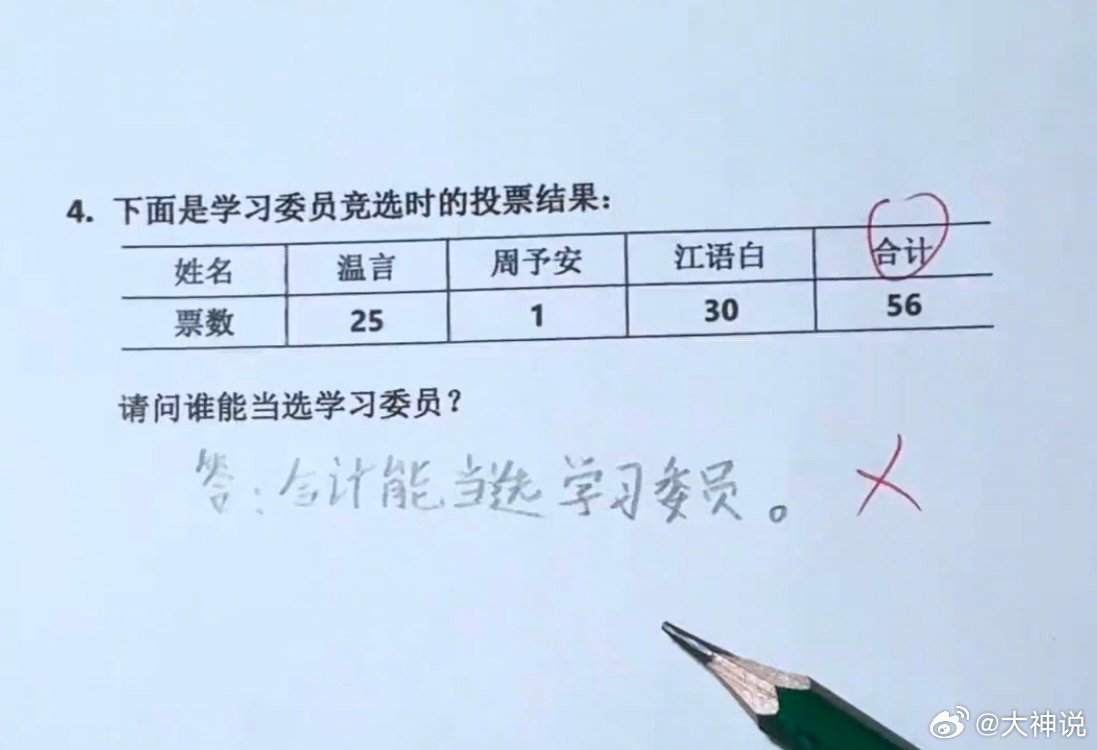 4. 下面是学习委员竞选时的投票结果：
姓名 温言 周予安 江语白 合计
票数 25 1 30 56
请问谁能当选学习委员？
答：合计能当选学习委员。
@大神说